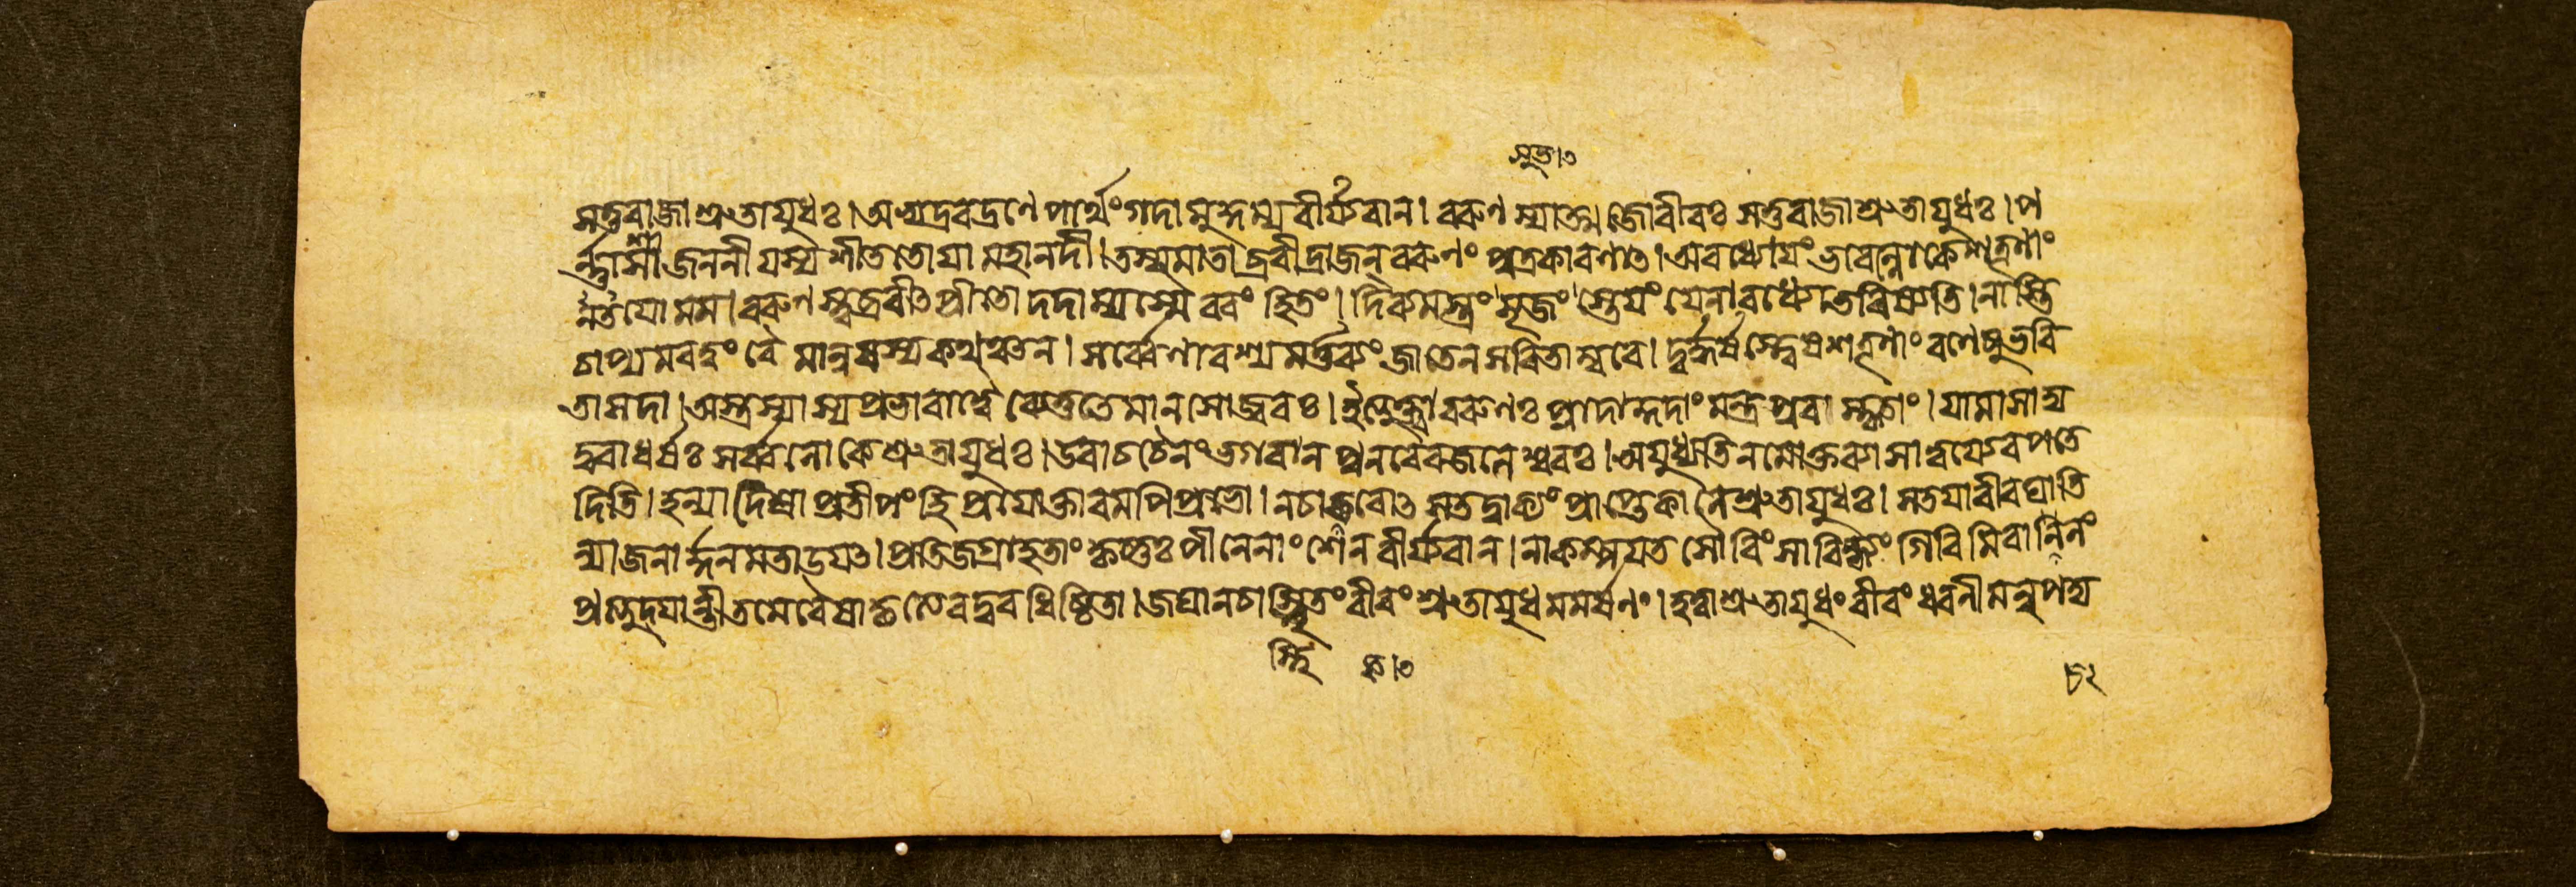 সুত।৩
সতুরাজা শ্রুতাযুধঃ। অভ্যদ্রবদ্রণে পার্থং গদামুদ্যম্য বীর্য্যবান। বরুণস্যাত্মজোবীরঃ সতুরাজা শ্রুতাযুধঃ। প
র্ন্নাশা জননীযস্য শীততোযা মহানদী। তস্যমাতাব্রবীদ্রাজন্ বরুণং পুত্রকারণাৎ। অবধ্যোযং ভবেল্লোকে শত্রূণাং
নতযো মম। বরুণস্ত্বব্রবীৎ প্রীতো দদাম্যস্মৈ বরং হিতং। দিব্যমস্ত্রং সৃজং স্তেযং যেনাবধ্যো ভবিষ্যতি। নাস্তি
চাপ্যমরত্বং বৈ মানুষস্য কথঞ্চন। সর্ব্বেণাবশ্যমর্ত্তব্যং জাতেন সরিতাম্বরে। দুর্দ্ধর্ষস্ত্বেষশত্রূণাং রণেষুভবি
তাসদা। অস্ত্রস্যাস্য প্রভাবাদ্বৈ ব্যেতুতে মানসোজ্বরঃ। ইত্যুক্ত্বা বরুণঃ প্রাদাদ্গদাং মন্ত্রপুরস্কৃতাং। যামাসাদ্য
দুরাধর্ষঃ সর্ব্বলোকে শ্রুতাযুধঃ। উবাচচৈনং ভগবান পুনরেবজলেশ্বরঃ। অযুধ্যতিনমোক্তব্যা সাত্বয্যেবপতে
দিতি। হন্যাদেষা প্রতীপং হি প্রযোক্তারমপিপ্রভো। নচাকরোৎ সতদ্বাক্যং প্রাপ্তেকালে শ্রুতাযুধঃ। সতযাবীরঘাতি
ন্যা জনার্দ্দনমতাডযৎ। প্রতিজগ্রাহতাং কৃষ্ণঃ পীনেনাংশেন বীর্য্যবান। নাকম্পযত সৌরিং সা বিন্ধ্যং গিরিমিবানিলং
প্রত্যুদ্যান্তী তমেবৈষা কৃত্যেবদুরধিষ্ঠিতা। জঘানচাস্থিতং বীরং শ্রুতাযুধমমর্ষণং। হত্বাশ্রুতাযুধং বীরং ধরনীমন্বপদ্য
স্থি
৮২